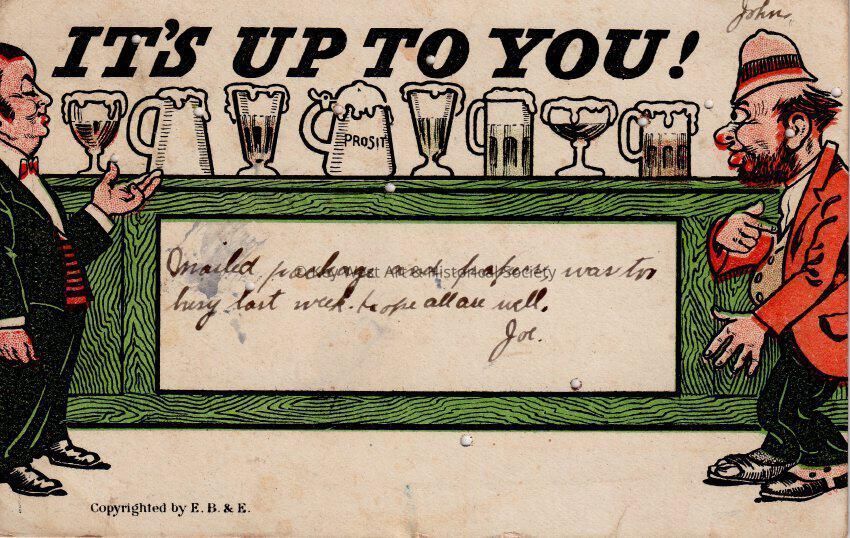 John
IT'S UP TO YOU!
PROSIT
Mailed package and papers was to
busy last week. hope all are well.
Joe.
© Key West Art & Historical Society
Copyrighted by E. B. & E.